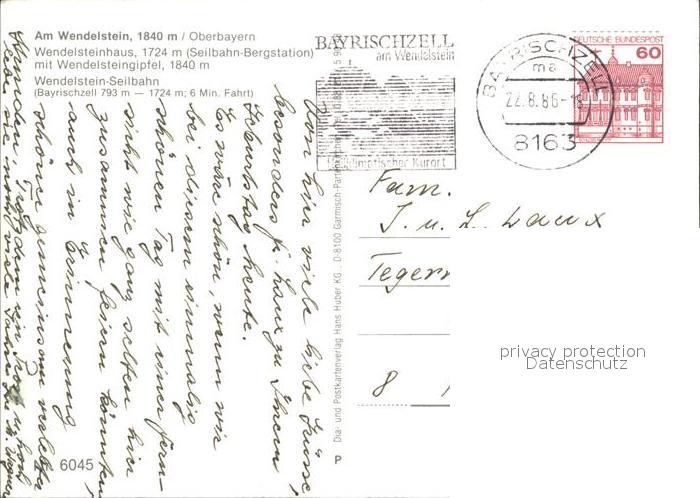 Am Wendelstein, 1840 m / Oberbayern
Wendelsteinhaus, 1724 m (Seilbahn-Bergstation)
mit Wendelsteingipfel, 1840 m
Wendelstein-Seilbahn
(Bayrischzell 793 m — 1724 m; 6 Min. Fahrt)
BAYRISCHZELL
am Wendelstein
Klimatischer Kurort
BAYRISCHZELL
ma
22.8.86-18
8163
DEUTSCHE BUNDESPOST
60
Von hier viele liebe Grüsse
besonders fr. Laux zu Ihrem
Geburtstag heute.
Es wäre schön, wenn wir
bei diesem einmalig
schönen Tag mit einer
sicht wie ganz selten hier
zusammen feiern könnten
auch in Erinnerung
schöne gemeinsam verlebte
Trotzdem ein
Fam.
J. u. L. Laux
Tegern
8 1
Dia- und Postkartenverlag Hans Huber KG, D-8100 Garmisch-Partenkirchen
privacy protection
Datenschutz
6045
P